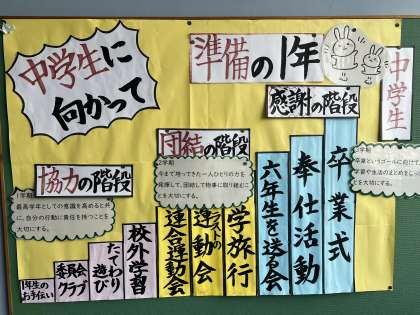 中学生に
向かって
準備の1年
中学生
感謝の階段
団結の階段
協力の階段
1学期
最高学年としての意識を高めると共
に、自分の行動に責任を持つことを
大切にする。
2学期
今まで培ってきた一人ひとりの力を
発揮して、団結して物事に取り組むこ
とを大切にする。
卒業というゴールに向けて、
学習や生活のまとめをしっ
とを大切にする。
1年生の
お手伝い
委員会
クラブ
たてわり
遊び
校外学習
連合運動会
ラストの
運動会
学旅行
六年生を送る会
奉仕活動
卒業式